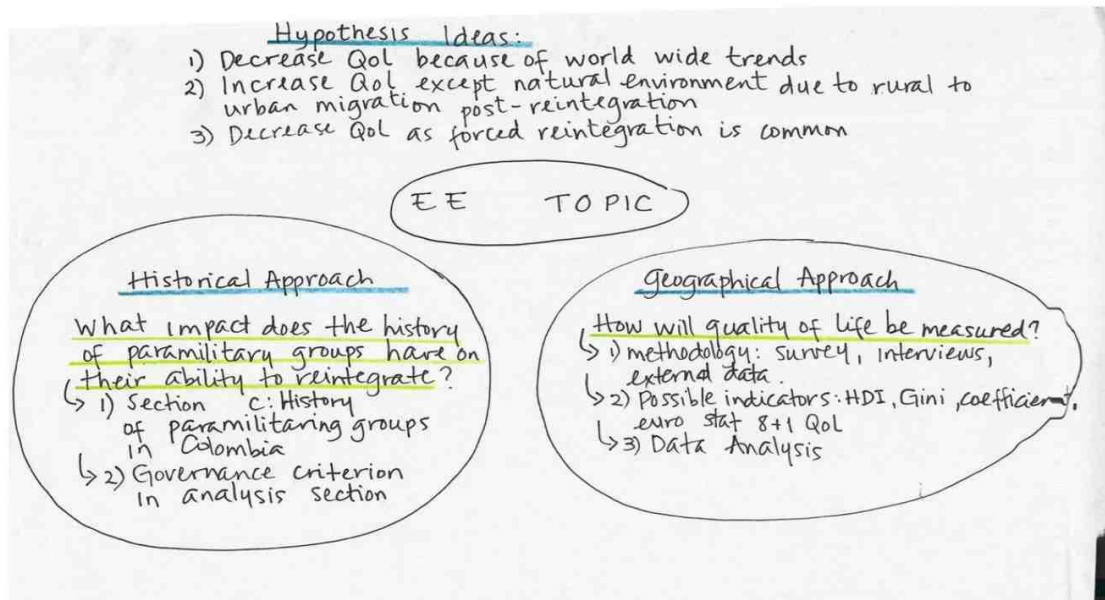 Hypothesis Ideas:
1) Decrease QoL because of world wide trends
2) Increase QoL except natural environment due to rural to
urban migration post-reintegration
3) Decrease QoL as forced reintegration is common
EE TOPIC
Historical Approach
What impact does the history
of paramilitary groups have on
their ability to reintegrate?
↳ 1) Section C: History
of paramilitaring groups
in Colombia
↳ 2) Governance criterion
in analysis section
Geographical Approach
How will quality of life be measured?
↳ 1) methodology: survey, interviews,
external data.
↳ 2) Possible indicators: HDI, Gini, coefficient,
euro stat 8+1 QoL
↳ 3) Data Analysis